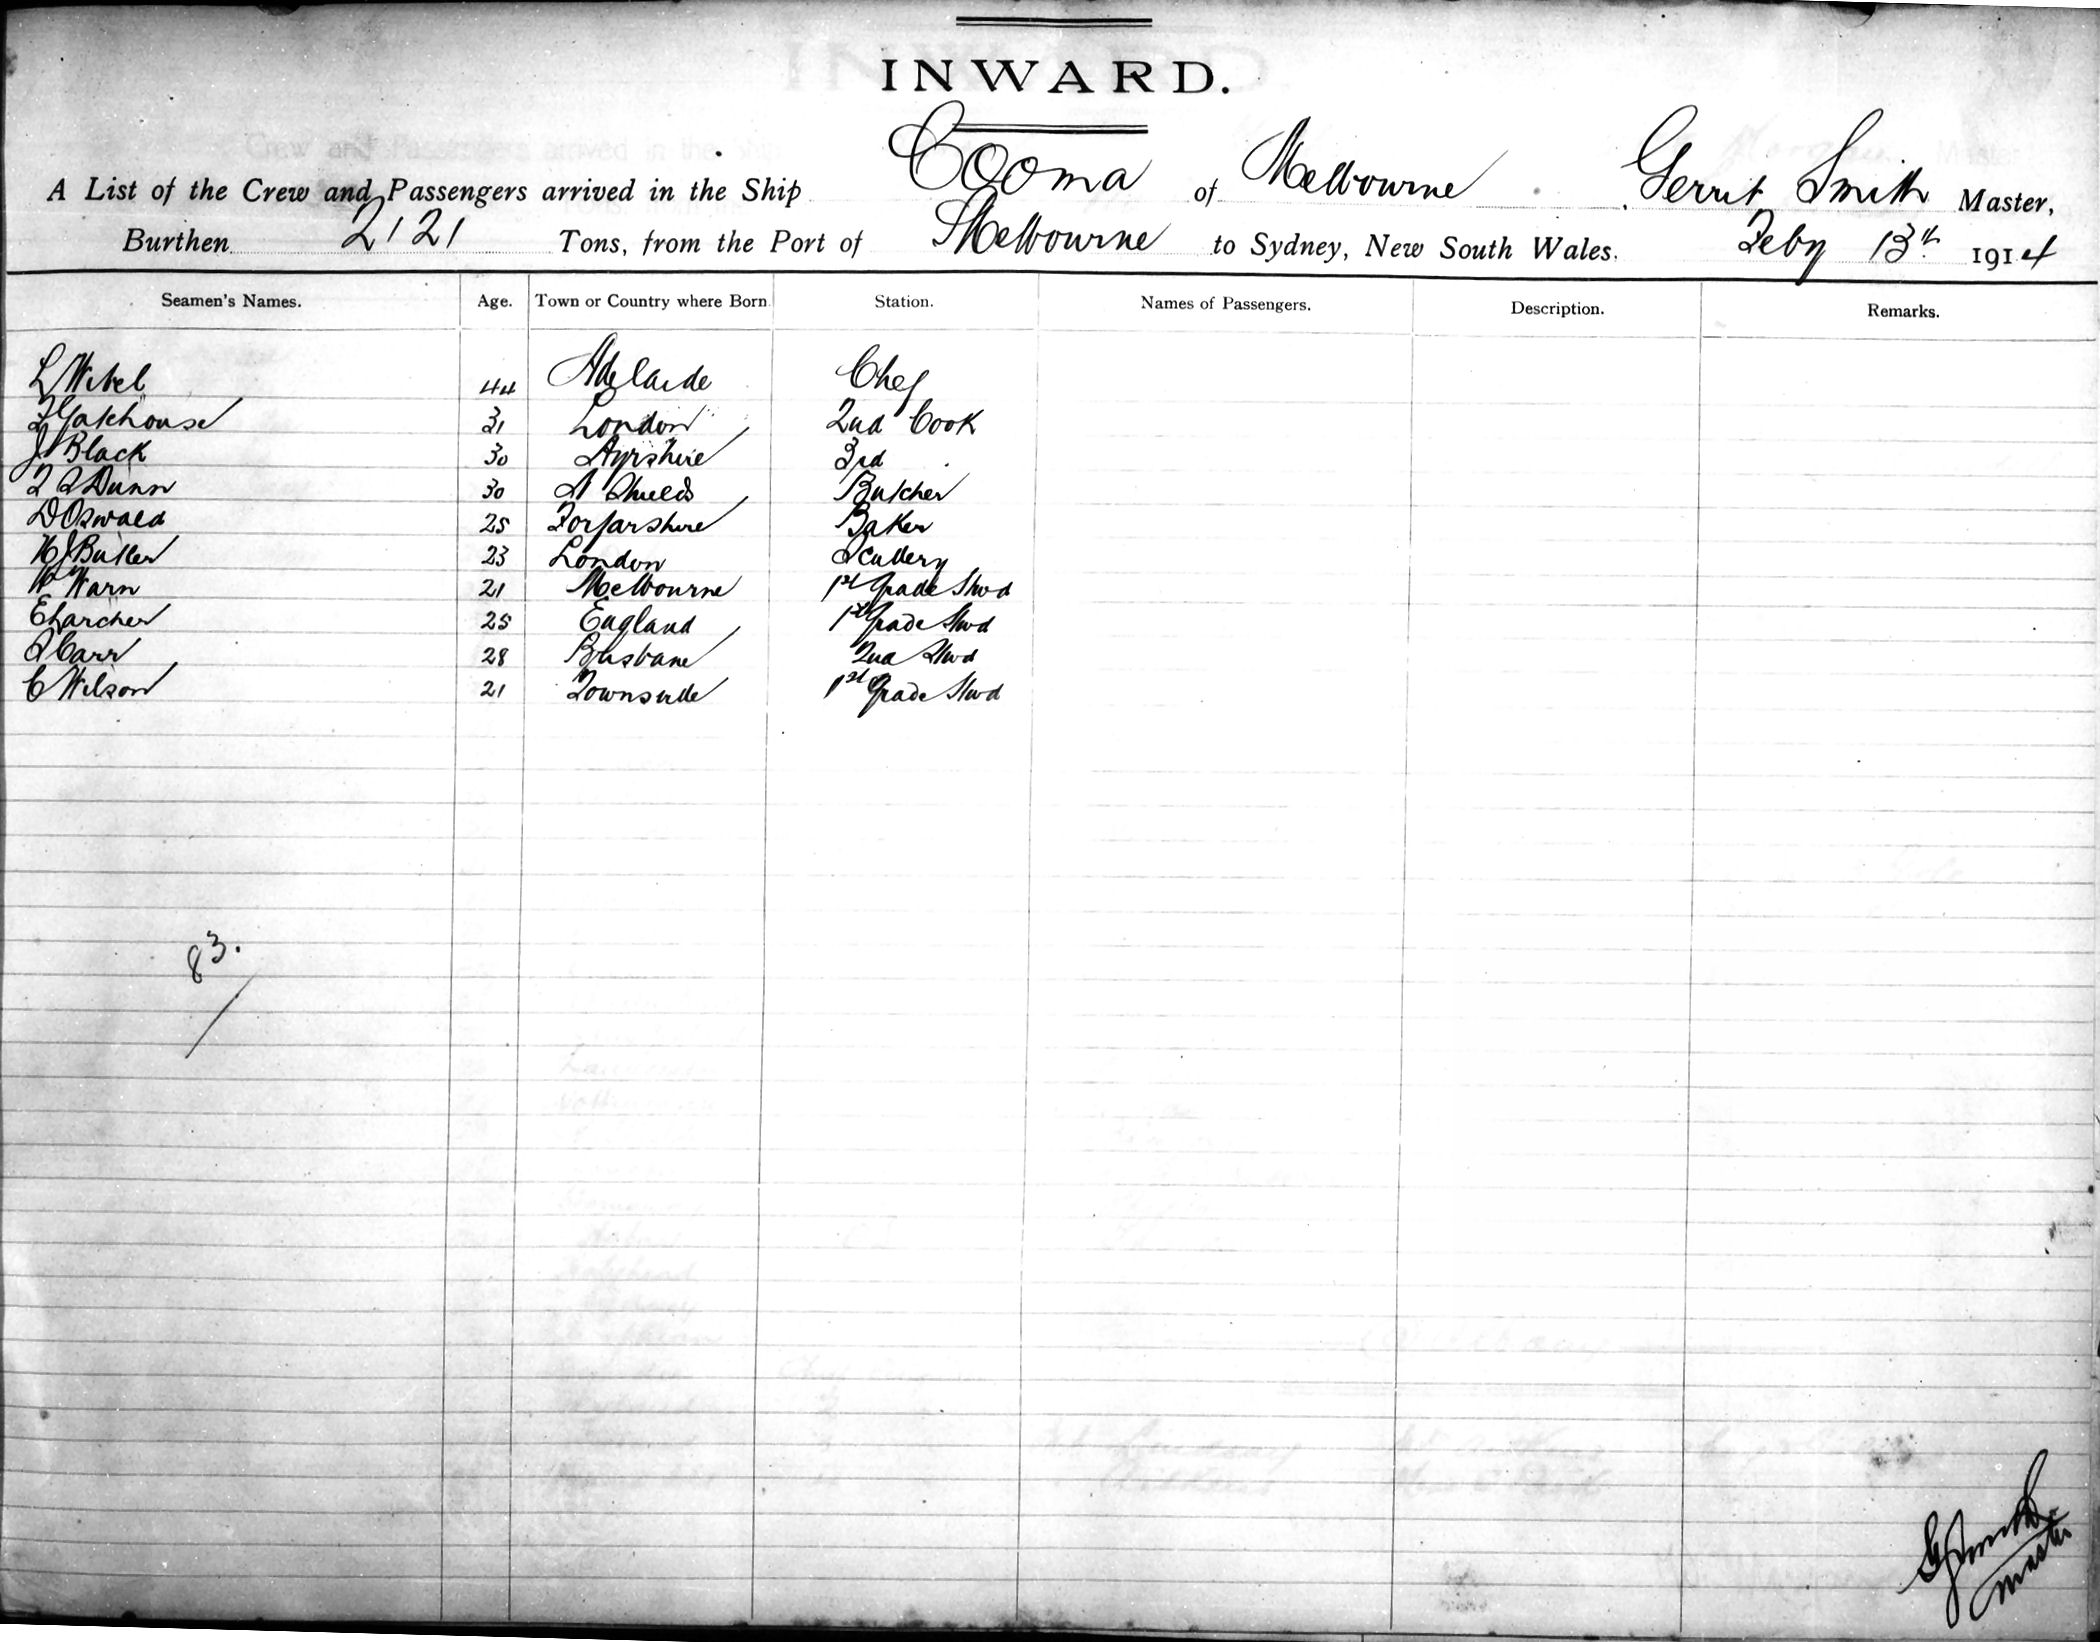 INWARD.
A List of the Crew and Passengers arrived in the Ship Cooma of Melbourne Gerrit Smith Master,
Burthen 2121 Tons, from the Port of Melbourne to Sydney, New South Wales. Feby 13th 1914
Seamen's Names. Age. Town or Country where Born. Station. Names of Passengers. Description. Remarks.
L Wibel 44 Adelaide Chef
F Gatehouse 31 London 2nd Cook
J Black 30 Ayrshire 3rd
Dunn 30 Shields Butcher
D Oswald 25 Forfarshire Baker
H J Butler 23 London Scullery
W Warn 21 Melbourne 1st Grade Stwd
E Larcher 25 England 1st Grade Stwd
Carr 28 Brisbane 2nd Stwd
C Wilson 21 1st Grade Stwd
83.
G Smith
Master